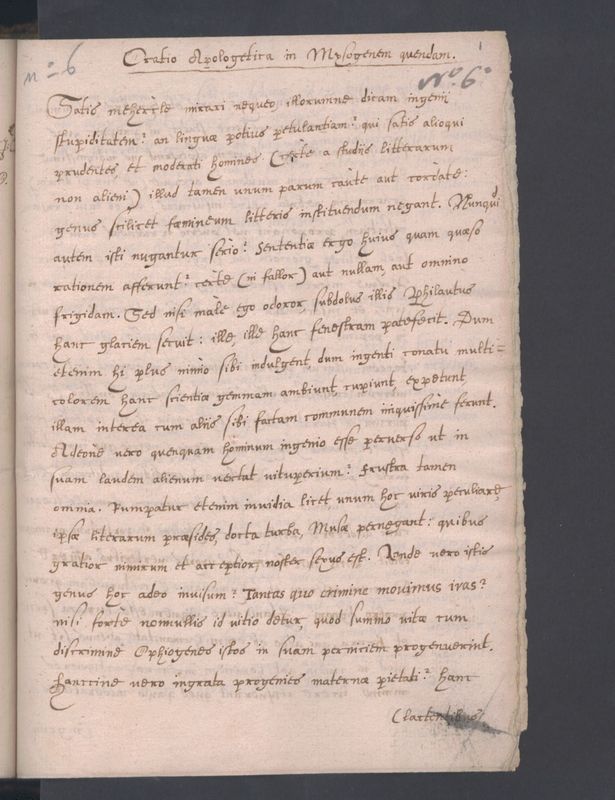 1
Oratio Apologetica in Mysogenem quendam.
No 6
No. 6.
Satis mehercle mirari nequeo, illorumne dicam ingenij
stupiditatem? an linguæ potius petulantiam? qui satis alioqui
prudentes, et moderati homines (certe a studiis litterarum
non alieni) illud tamen unum parum caute aut cordate:
genus scilicet fœmineum litteris instituendum negant. Nunquid
autem isti nugantur serio? Sententiæ ergo huius quam quæso
rationem afferunt? certe (ni fallor) aut nullam, aut omnino
frigidam. Sed nisi male ego odoror, subdolus illis Philautus
hanc glaciem secuit: ille, ille hanc fenestram patefecit. Dum
etenim hi plus nimio sibi indulgent, dum ingenti conatu multi=
colorem hanc scientiæ gemmam ambiunt, cupiunt, expetunt,
illam interea cum aliis sibi factam communem iniquissime ferunt.
Adeone vero quenquam hominum ingenio esse perverso ut in
suam laudem alienum vertat vituperium? Frustra tamen
omnia. Rumpatur etenim invidia licet, unum hoc viris peculiare,
ipsæ literarum præsides, docta turba, Musæ pernegant: quibus
gratior nimirum et acceptior, noster sexus est. Unde vero istis
genus hoc adeo invisum? Tantas quo crimine movimus iras?
nisi forte nonnullis id vitio detur, quod summo vitæ cum
discrimine Ophiogenes istos in suam perniciem progenuerint.
Hanccine vero ingrata progenies maternæ pietati? hanc
(lactentibus